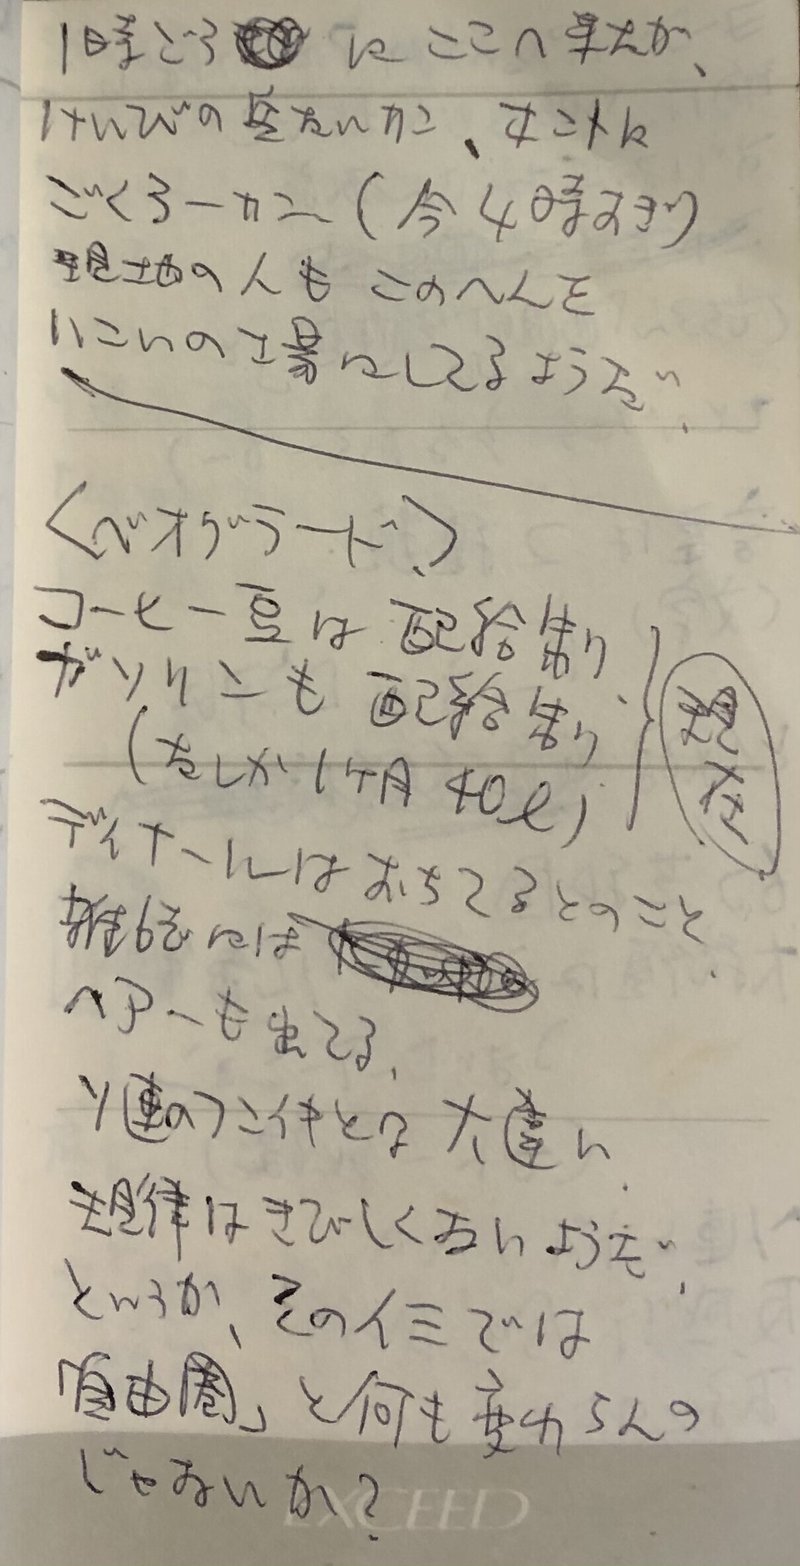 1時ごろ にここへ来たが、
けいびの兵たいサン、ホントに
ごくろーサン(今4時すぎ)
現地の人もこのへんを
いこいの場にしてるようだ。
〈ベオグラード〉
コーヒー豆は配給制
ガソリンも配給制
(たしか1ヶ月40ℓ)
現在
ディナールはおちてるとのこと。
雑誌には
ヘアーも出てる。
ソ連のフンイキとは大違い。
規律はきびしくないようだ。
というか、そのイミでは
「自由圏」と何も変わらんの
じゃないか?
EXCEED